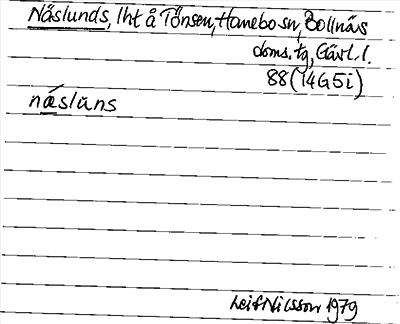 Näslunds, lht å Tönsen, Hanebo sn, Bollnäs
doms. tg, Gävl. l.
88 (14G5i)
næslūns
Leif Nilsson 1979